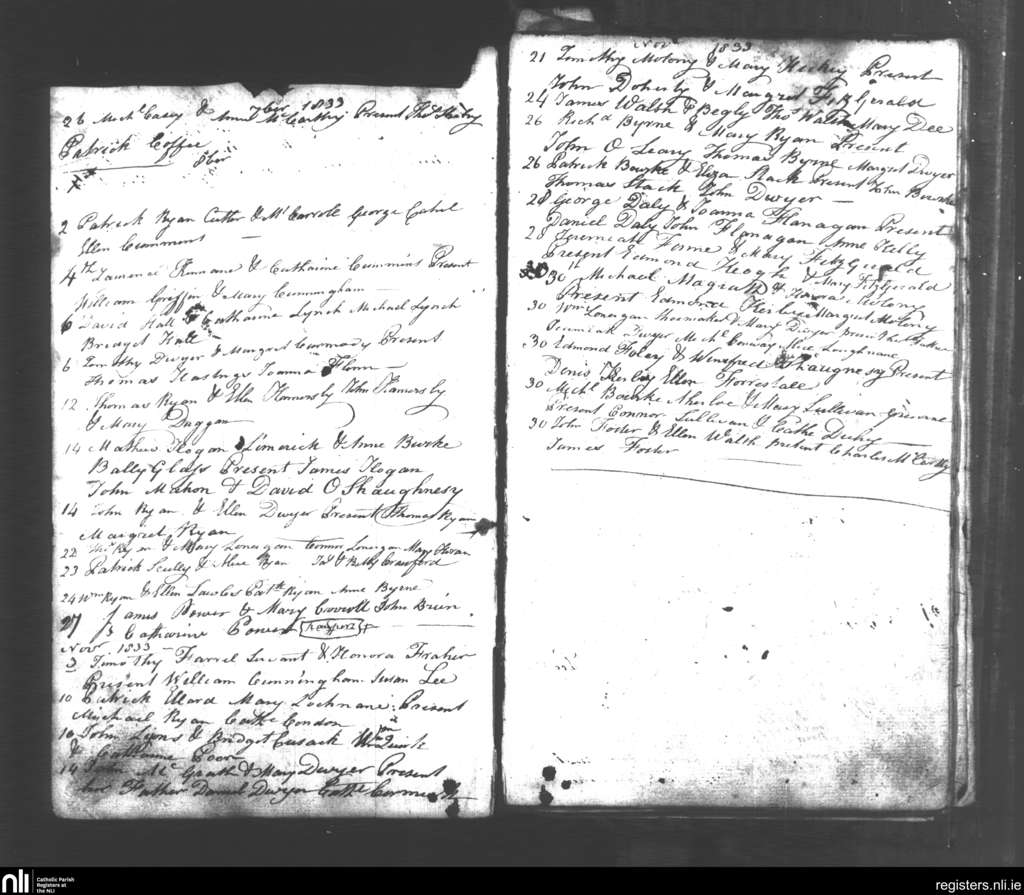 7ber 1833
26 Mich Casey & Anne McCarthy Present Thos
Patrick Coffee
8ber
2 Patrick Ryan Cutler & M Carroll George Cahil
Ellen Cummins
4th Laurence Kinnane & Catharine Cummins Present
William Griffin & Mary Cunningham
6 David Hall & Catharine Lynch Michael Lynch
Bridget Hall
6 Timothy Dwyer & Margret Carmody Present
Thomas Hastings Joanna Flinn
12 Thomas Ryan & Ellen Hamersly John Hamersly
& Mary Duggan
14 Mathew Hogan Limerick & Anne Burke
Bally Glass Present James Hogan
John Mahon & David O Shaughnesy
14 John Ryan & Ellen Dwyer Present Thomas Ryan
Margret Ryan
22 Ths Ryan & Mary Lonargan Connor Lonargan Mary
23 Patrick Scully & Alice Ryan Jas & Betty Crawford
24 Wm Ryan & Ellen Lawles Cath Ryan Anne Byrne
27 James Power & Mary Carroll John Brien
& Catharine Power
Nov 1833
3 Timothy Farrel Servant & Honora Fraher
Present William Cunningham Susan Lee
10 Patrick Ward Mary Lochnane Present
Michael Ryan Cathe Condon
10 John Lyons & Bridget Cusack Wm Quirk
& Catharine
14 McGrath & Mary Dwyer Present
her Father Daniel Dwyer Cathe
Nov 1833
21 Timothy Molony & Mary Hickey Present
John Doherty & Margret FitzGerald
24 James Walsh & Begly Thos Walsh Mary Dee
26 Richd Byrne & Mary Ryan Present
John O Leary Thomas Byrne Margret Dwyer
26 Patrick Bourke & Eliza Stack Present John Bourke
Thomas Stack John Dwyer
28 George Daly & Joanna Flanagan Present
Daniel Daly John Flanagan Anne Kelly
28 Jeremiah & Mary FitzGerald
Present Edmond Keogh & Mary FitzGerald
30 Michael Magrath & Honora Molony
Present Edmond Margret Molony
30 Wm Lonargan Shoemaker & Mary Dwyer Present
Jeremiah Dwyer Mich Conway Alice Loughnane
30 Edmond Foley & Winefred Shaugnesy Present
Denis Ellen Forrestale
30 Michl Bourke & Mary Sullivan
Present Connor Sullivan & Cathe
30 John Foster & Ellen Walsh present Charles McCarthy
James Foster
nli
Catholic Parish
Registers at
the NLI
registers.nli.ie